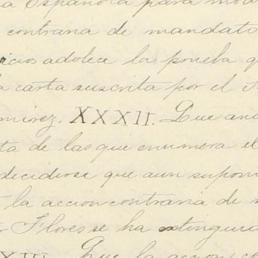 a Española para
contraria de mandato
adolece la prueba q
a carta suscrita por el
mirez. XXXII. Que an
ta de las que enumera el
decidirse que aun supon
la accion contraria de
Flores se ha extinguid
XXXIII. Que la accion co